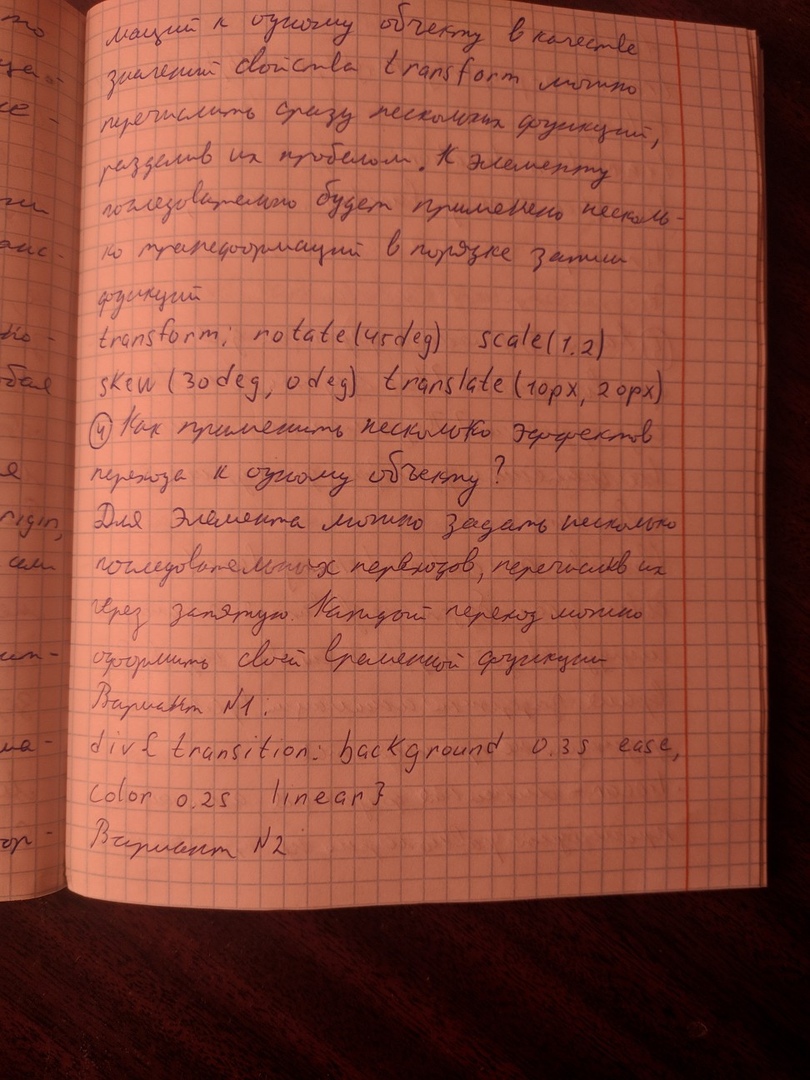 то
маций к одному объекту в качестве
значений свойства transform можно
перечислить сразу несколько функций,
разделив их пробелом. К элементу
последовательно будет применено несколь-
ко трансформаций в порядке записи
функций
transform: rotate(45deg) scale(1.2)
skew (30deg, 0deg) translate(10px, 20px)
④ Как применить несколько эффектов
перехода к одному объекту?
Для элемента можно задать несколько
последовательных переходов, перечислив их
через запятую. Каждый переход можно
оформить своей временной функции
Вариант N1:
div{ transition: background 0.3s ease,
color 0.2s linear}
Вариант N2